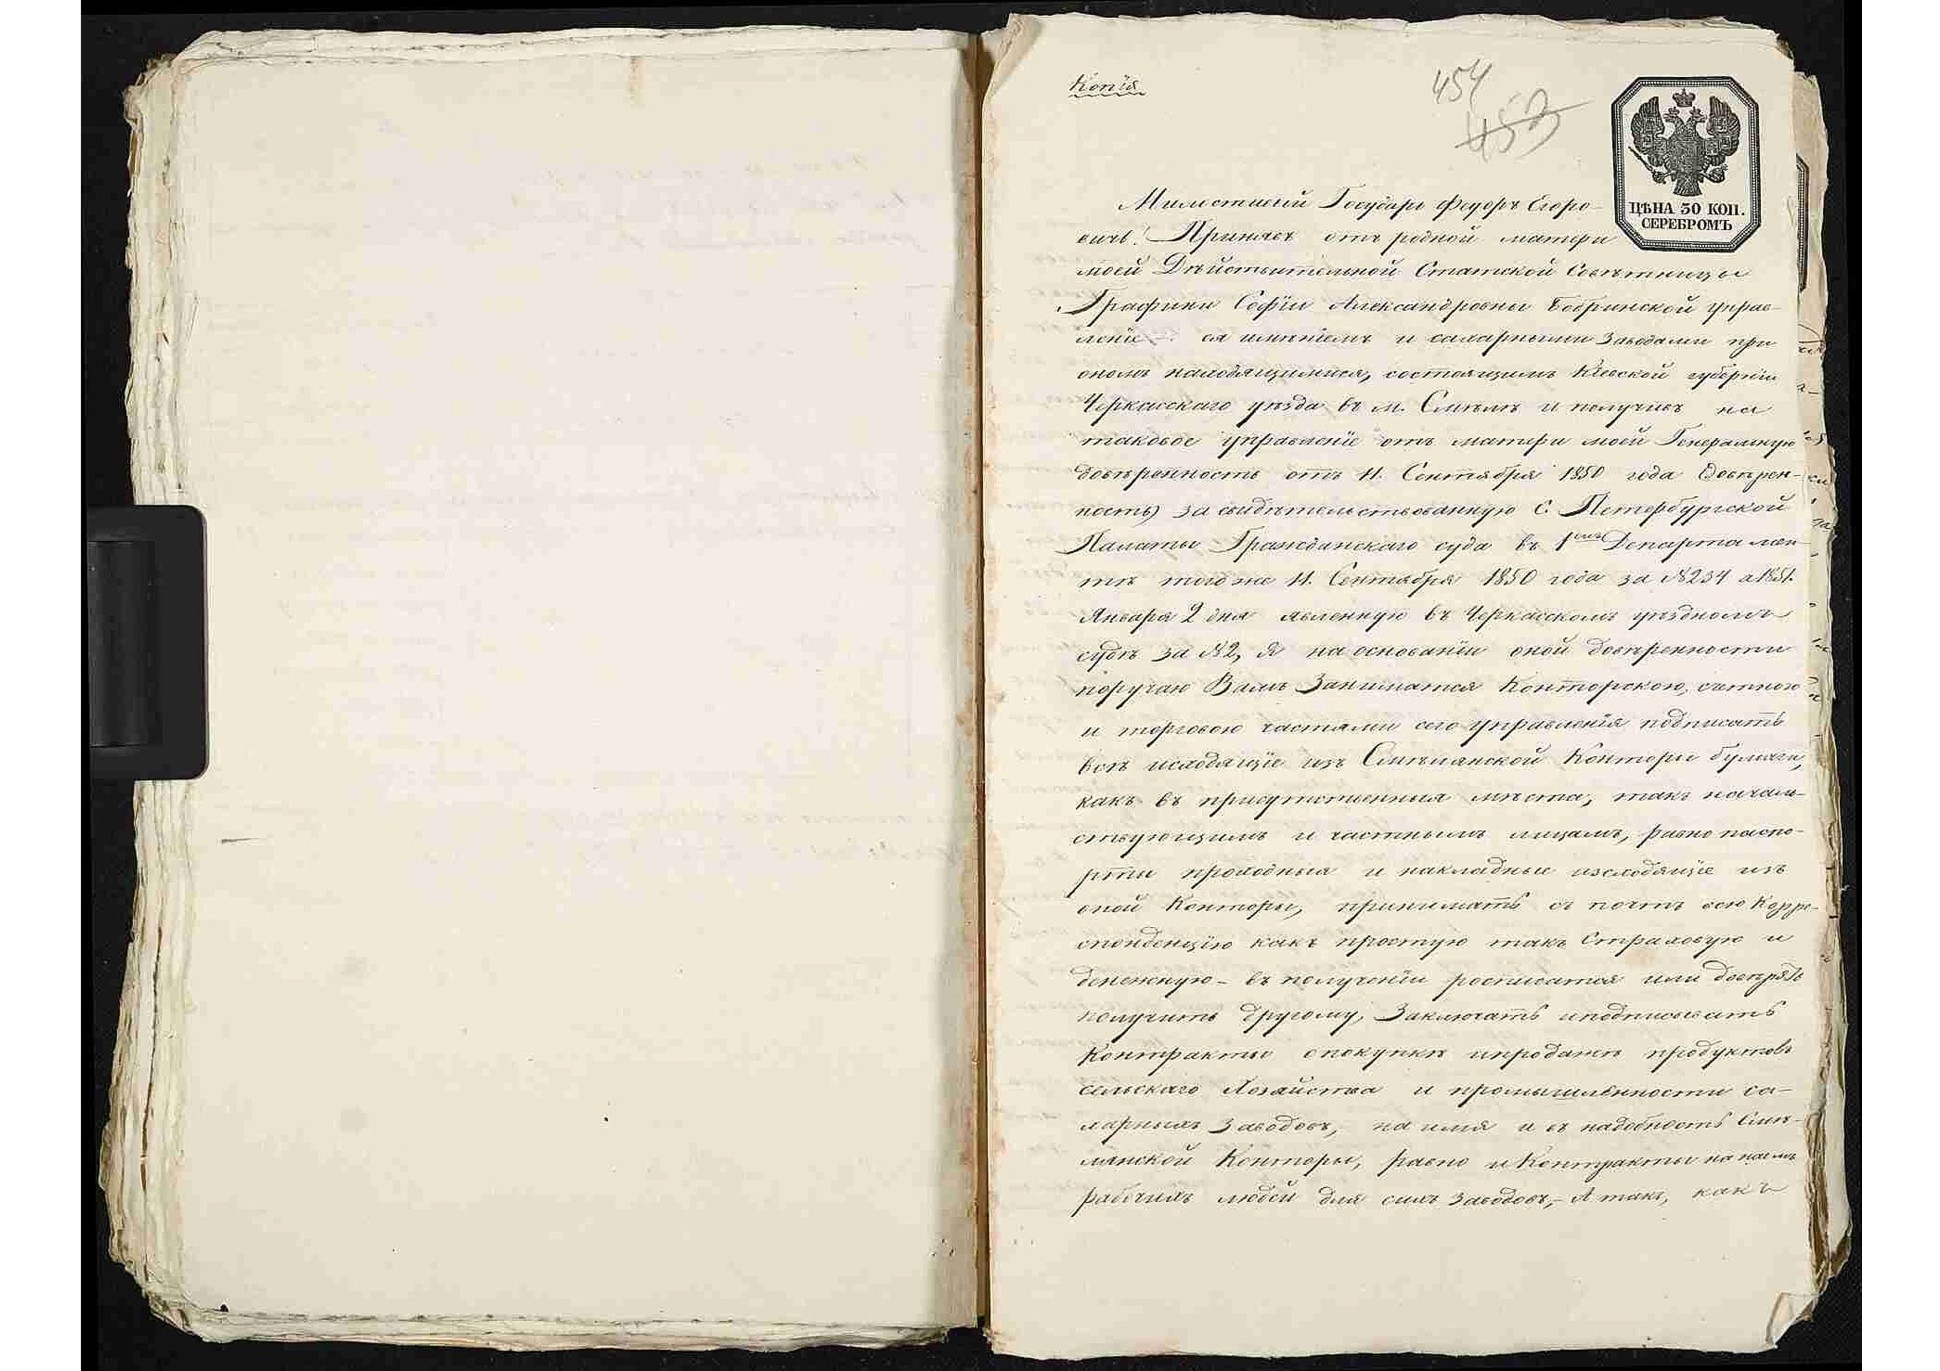 Копія
454
453
ЦѢНА 30 КОП.
СЕРЕБРОМЪ
Милостивый Государь Федоръ Егоро-
вичъ! Принявъ отъ родной матери
моей Дѣйствительной Статской Совѣтницы
Графини Софіи Александровны Бобринской управ-
леніе ея имѣніемъ и сахарными заводами при
ономъ находящимися, состоящимъ Кіевской губерніи
Черкасскаго уѣзда въ м. Смѣлѣ и получивъ на
таковое управленіе отъ матери моей Генеральную
довѣренность отъ 11. Сентября 1850 года (довѣрен-
ность) засвидѣтельствованную С. Петербургской
Палаты Гражданскаго суда въ 1омъ Департамен-
тѣ того же 11. Сентября 1850 года за №234 а 1851.
Января 2 дня явленную въ Черкасскомъ уѣздномъ
судѣ за №2, Я на основаніи оной довѣренности
поручаю Вамъ Заниматся Конторскою, счетною
и торговою частями сего управленія подписать
всѣ исходящіе изъ Смѣлянской Конторы бумаги,
какъ въ присутственныя мѣста, такъ началь-
ствующимъ и частнымъ лицамъ, равно паспо-
рты проходныя и накладные исходящіе изъ
оной Конторы, принимать съ почтъ всю Корре-
спонденцію какъ простую такъ Страховую и
денежную - въ полученіи росписатся или довѣрять
получить другому, Заключать иподписывать
Контракты опокупкѣ ипродажѣ продуктовъ
сельскаго Хозяйства и промышленности са-
харныхъ Заводовъ, на имя и въ надобность Смѣ-
лянской Конторы, равно и Контракты на наемъ
рабочихъ людей для сихъ Заводовъ, - А такъ, какъ